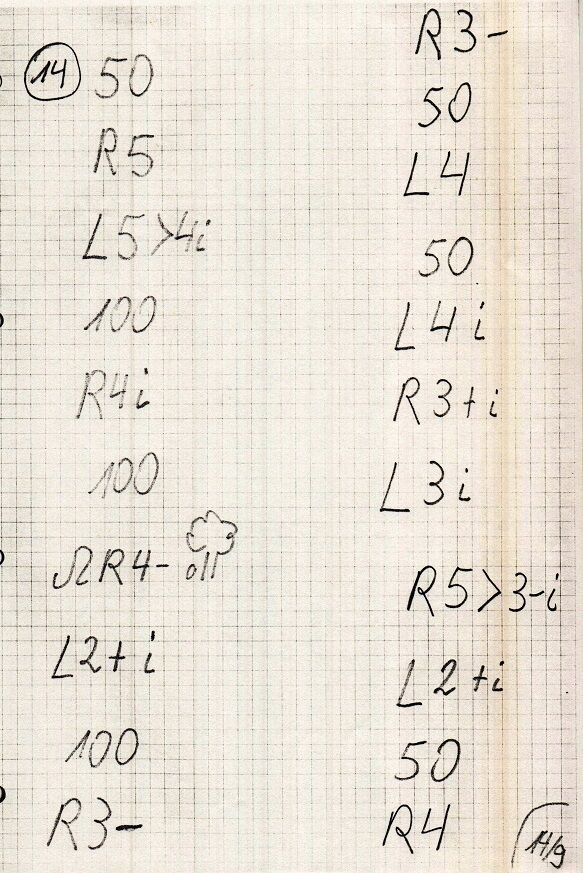 14
50
R5
L5>4i
100
R4i
100
ΩR4-
L2+i
100
R3-
R3-
50
L4
50
L4i
R3+i
L3i
R5>3-i
L2+i
50
R4
14/9